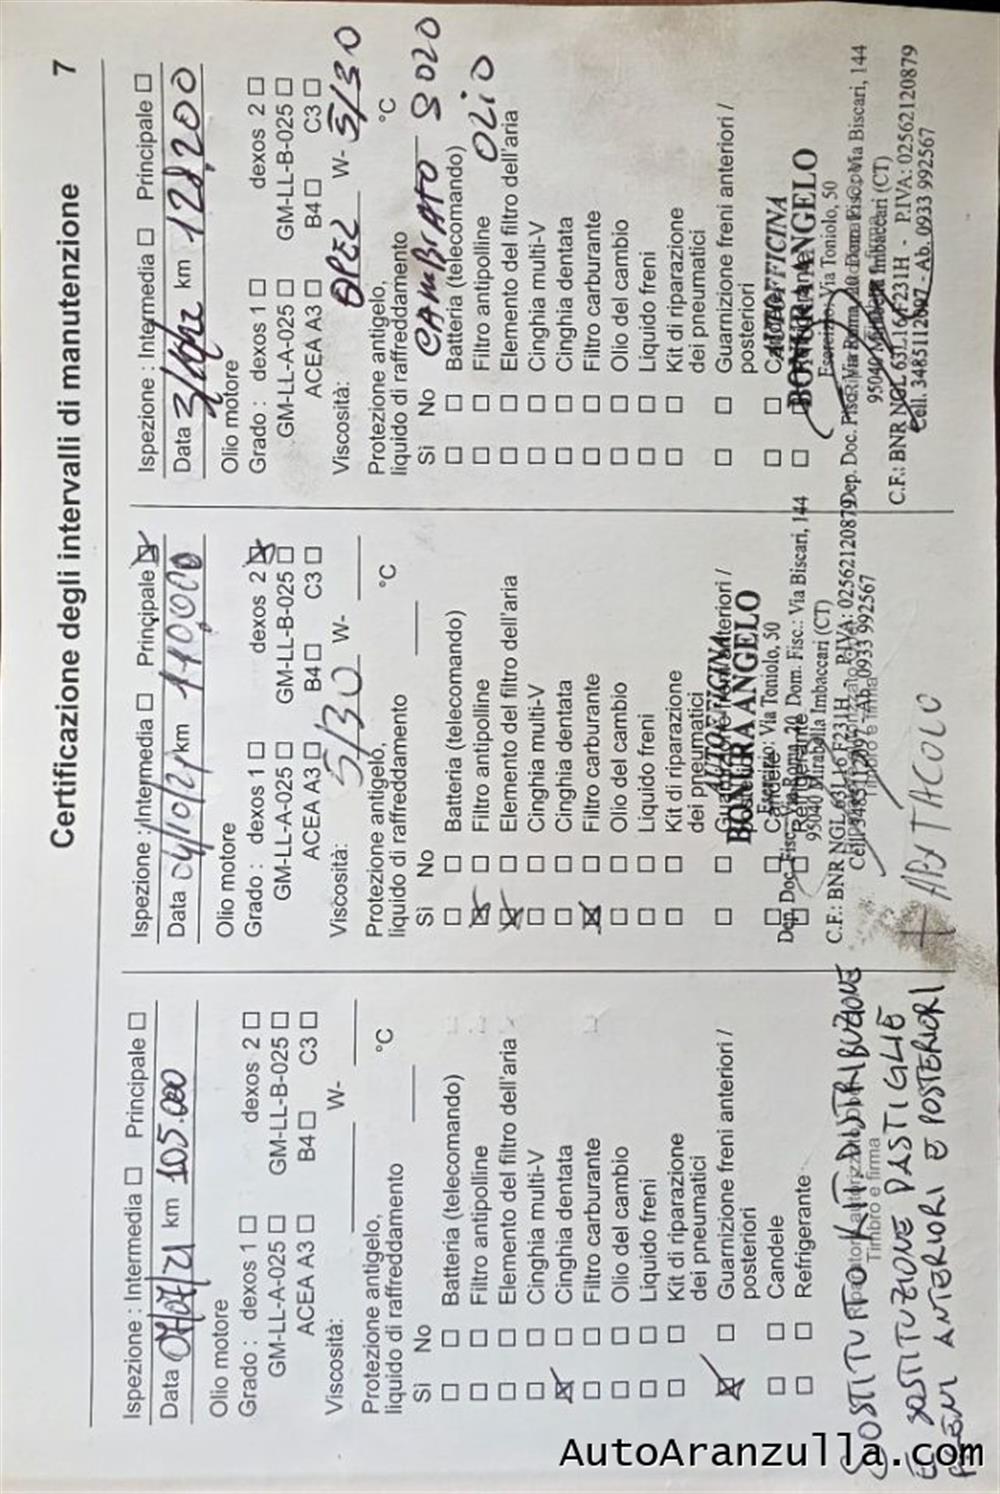 Certificazione degli intervalli di manutenzione 7
Ispezione : Intermedia □ Principale □
Data 07/07/21 km 105.000
Olio motore
Grado : dexos 1 □ dexos 2 □
GM-LL-A-025 □ GM-LL-B-025 □
ACEA A3 □ B4 □ C3 □
Viscosità: W-
Protezione antigelo,
liquido di raffreddamento °C
Sì No
□ □ Batteria (telecomando)
□ □ Filtro antipolline
□ □ Elemento del filtro dell'aria
□ □ Cinghia multi-V
☒ □ Cinghia dentata
□ □ Filtro carburante
□ □ Olio del cambio
□ □ Liquido freni
□ □ Kit di riparazione
dei pneumatici
☒ □ Guarnizione freni anteriori /
posteriori
□ □ Candele
□ □ Refrigerante
SOSTITUITO KIT DISTRIBUZIONE
Timbro e firma
E SOSTITUZIONE PASTIGLIE
FRENI ANTERIORI E POSTERIORI
Ispezione : Intermedia □ Principale ☒
Data 04/10/21 km 110,000
Olio motore
Grado : dexos 1 □ dexos 2 ☒
GM-LL-A-025 □ GM-LL-B-025 □
ACEA A3 □ B4 □ C3 □
Viscosità: 5/30 W-
Protezione antigelo,
liquido di raffreddamento °C
Sì No
□ □ Batteria (telecomando)
☒ □ Filtro antipolline
☒ □ Elemento del filtro dell'aria
□ □ Cinghia multi-V
□ □ Cinghia dentata
☒ □ Filtro carburante
□ □ Olio del cambio
□ □ Liquido freni
□ □ Kit di riparazione
dei pneumatici
AUTOFFICINA
□ □ Guarnizione freni anteriori /
BONURA ANGELO
Esercizio: Via Toniolo, 50
□ □ Candele
Dep. Doc. Fisc.: Via Roma, 20 Dom. Fisc.: Via Biscari, 144
□ □ Refrigerante
95040 Mirabella Imbaccari (CT)
C.F.: BNR NGL 63L16 F231H P.IVA: 02562120879
Cell. 3485112097 - Ab. 0933 992567
Timbro e firma
+ AD
Ispezione : Intermedia □ Principale □
Data km 128.200
Olio motore
Grado : dexos 1 □ dexos 2 □
GM-LL-A-025 □ GM-LL-B-025 □
ACEA A3 □ B4 □ C3 □
Viscosità: OPEL W- 5/30
Protezione antigelo,
liquido di raffreddamento °C
Sì No CAMBIATO SOLO
□ □ Batteria (telecomando) OLIO
□ □ Filtro antipolline
□ □ Elemento del filtro dell'aria
□ □ Cinghia multi-V
□ □ Cinghia dentata
□ □ Filtro carburante
□ □ Olio del cambio
□ □ Liquido freni
□ □ Kit di riparazione
dei pneumatici
□ □ Guarnizione freni anteriori /
posteriori
AUTOFFICINA
BONURA ANGELO
Esercizio: Via Toniolo, 50
Dep. Doc. Fisc.: Via Roma, 20 Dom. Fisc.: Via Biscari, 144
95040 Mirabella Imbaccari (CT)
C.F.: BNR NGL 63L16 F231H - P.IVA: 02562120879
Cell. 3485112097 - Ab. 0933 992567
AutoAranzulla.com